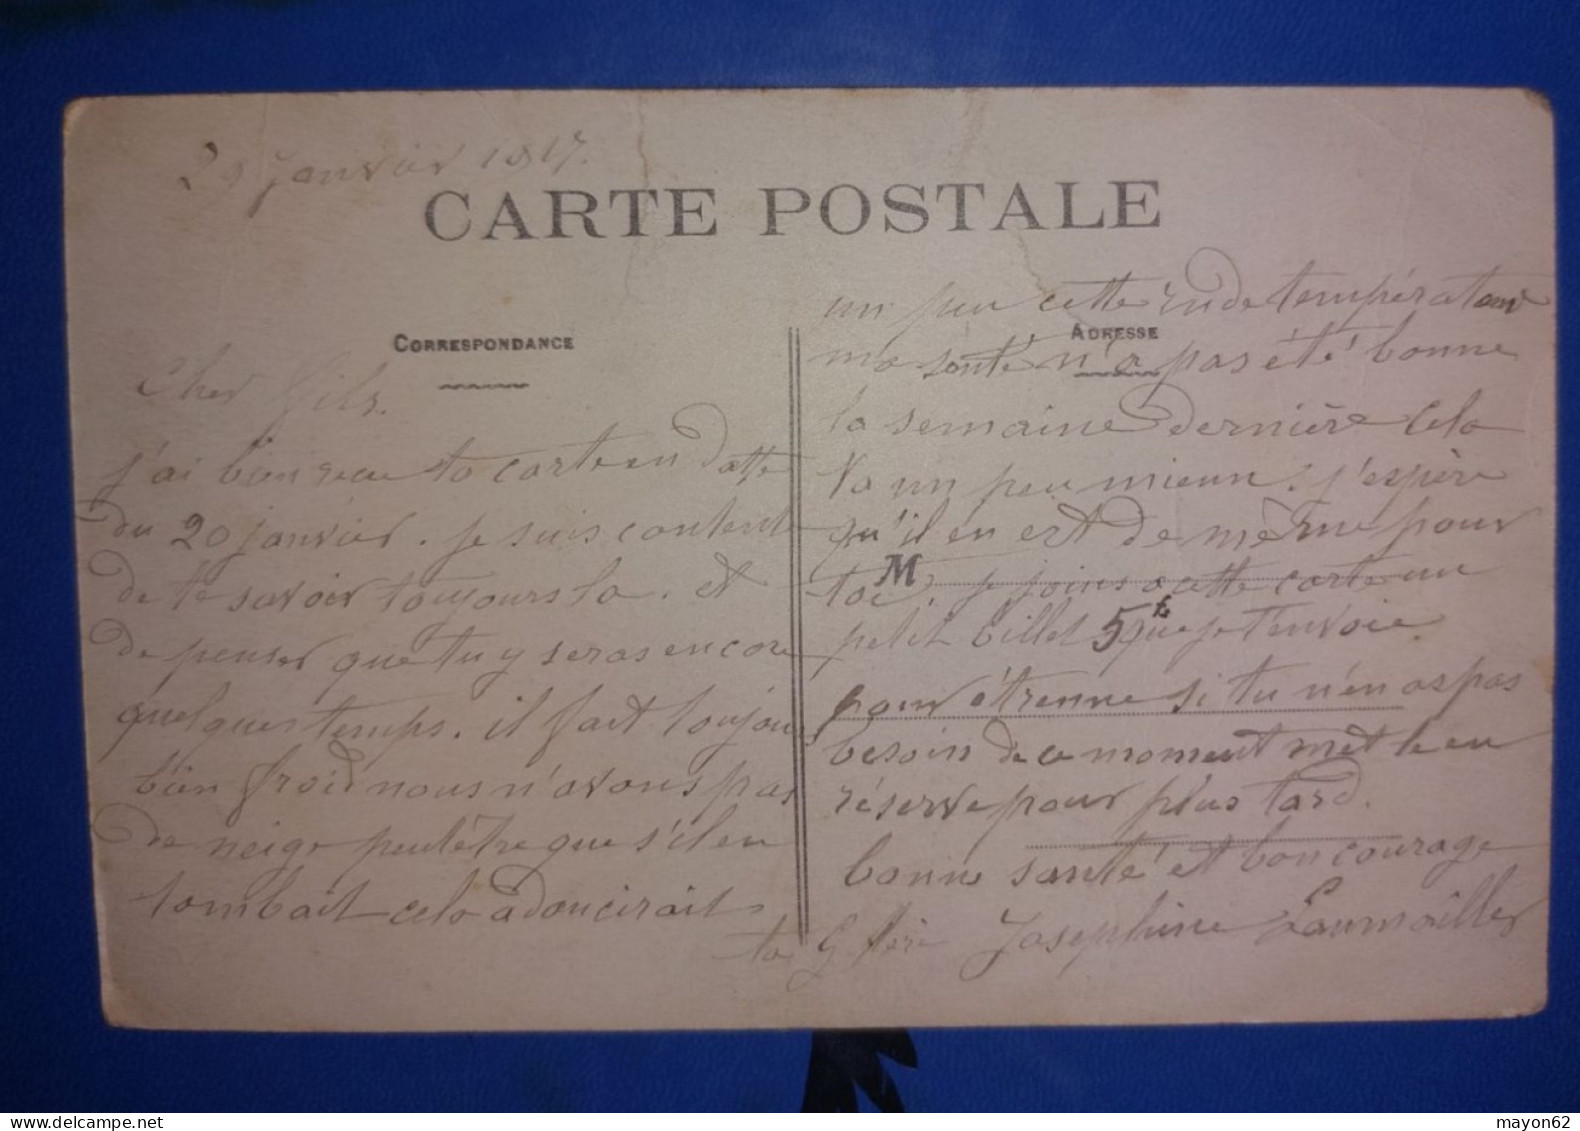 29 janvier 1917.
CARTE POSTALE
CORRESPONDANCE
Cher fils.
j'ai bien recue ta carte en datte
du 20 janvier. je suis contente
de te savoir toujours la. et
de penser que tu y seras encore
quelques temps. il fait toujours
bien froid nous n'avons pas
de neige peut être que s'il en
tombait cela adoucirait
ADRESSE
un peu cette rude température
ma santé n'a pas été bonne
la semaine dernière cela
va un peu mieux. j'espère
qu'il en est de même pour
toi. je joins a cette carte un
M
petit billet 5f que je t'envoie
pour étrenne si tu n'en as pas
besoin de ce moment met le en
réserve pour plus tard.
bonne santé et bon courage
ta G Mère Josephine Laumailler
mayon62